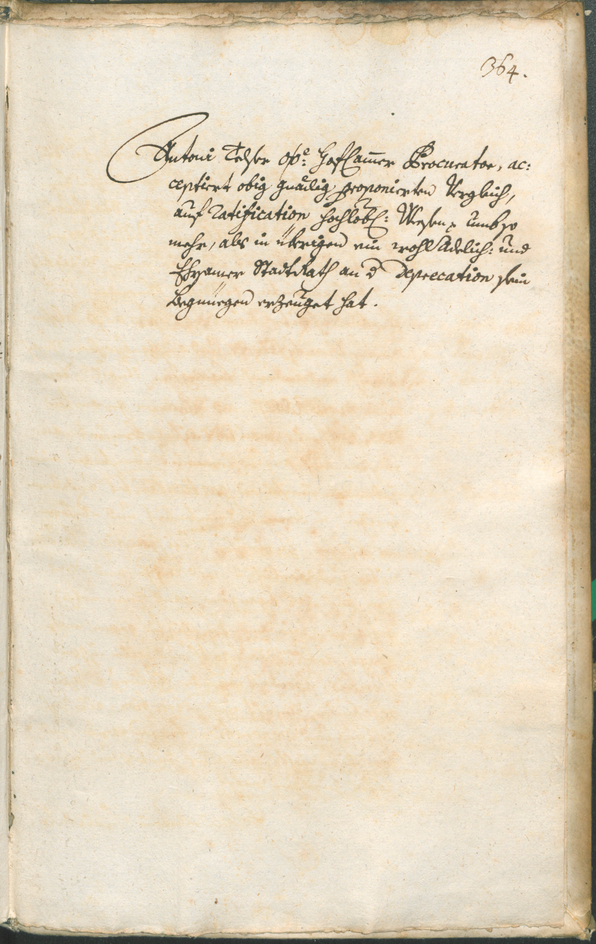 364.
Antoni Telser OÖ: HofCammer Procurator, ac:
ceptiert obig gnädig proponierten Vergleich,
auf Ratification Hochlöbl: Wesen, umb so
mehr, als in übrigen ein wohl Adelich: und
Ehrsamer StadtRath an d Deprecation sein
Begnüegen erzeuget hat.